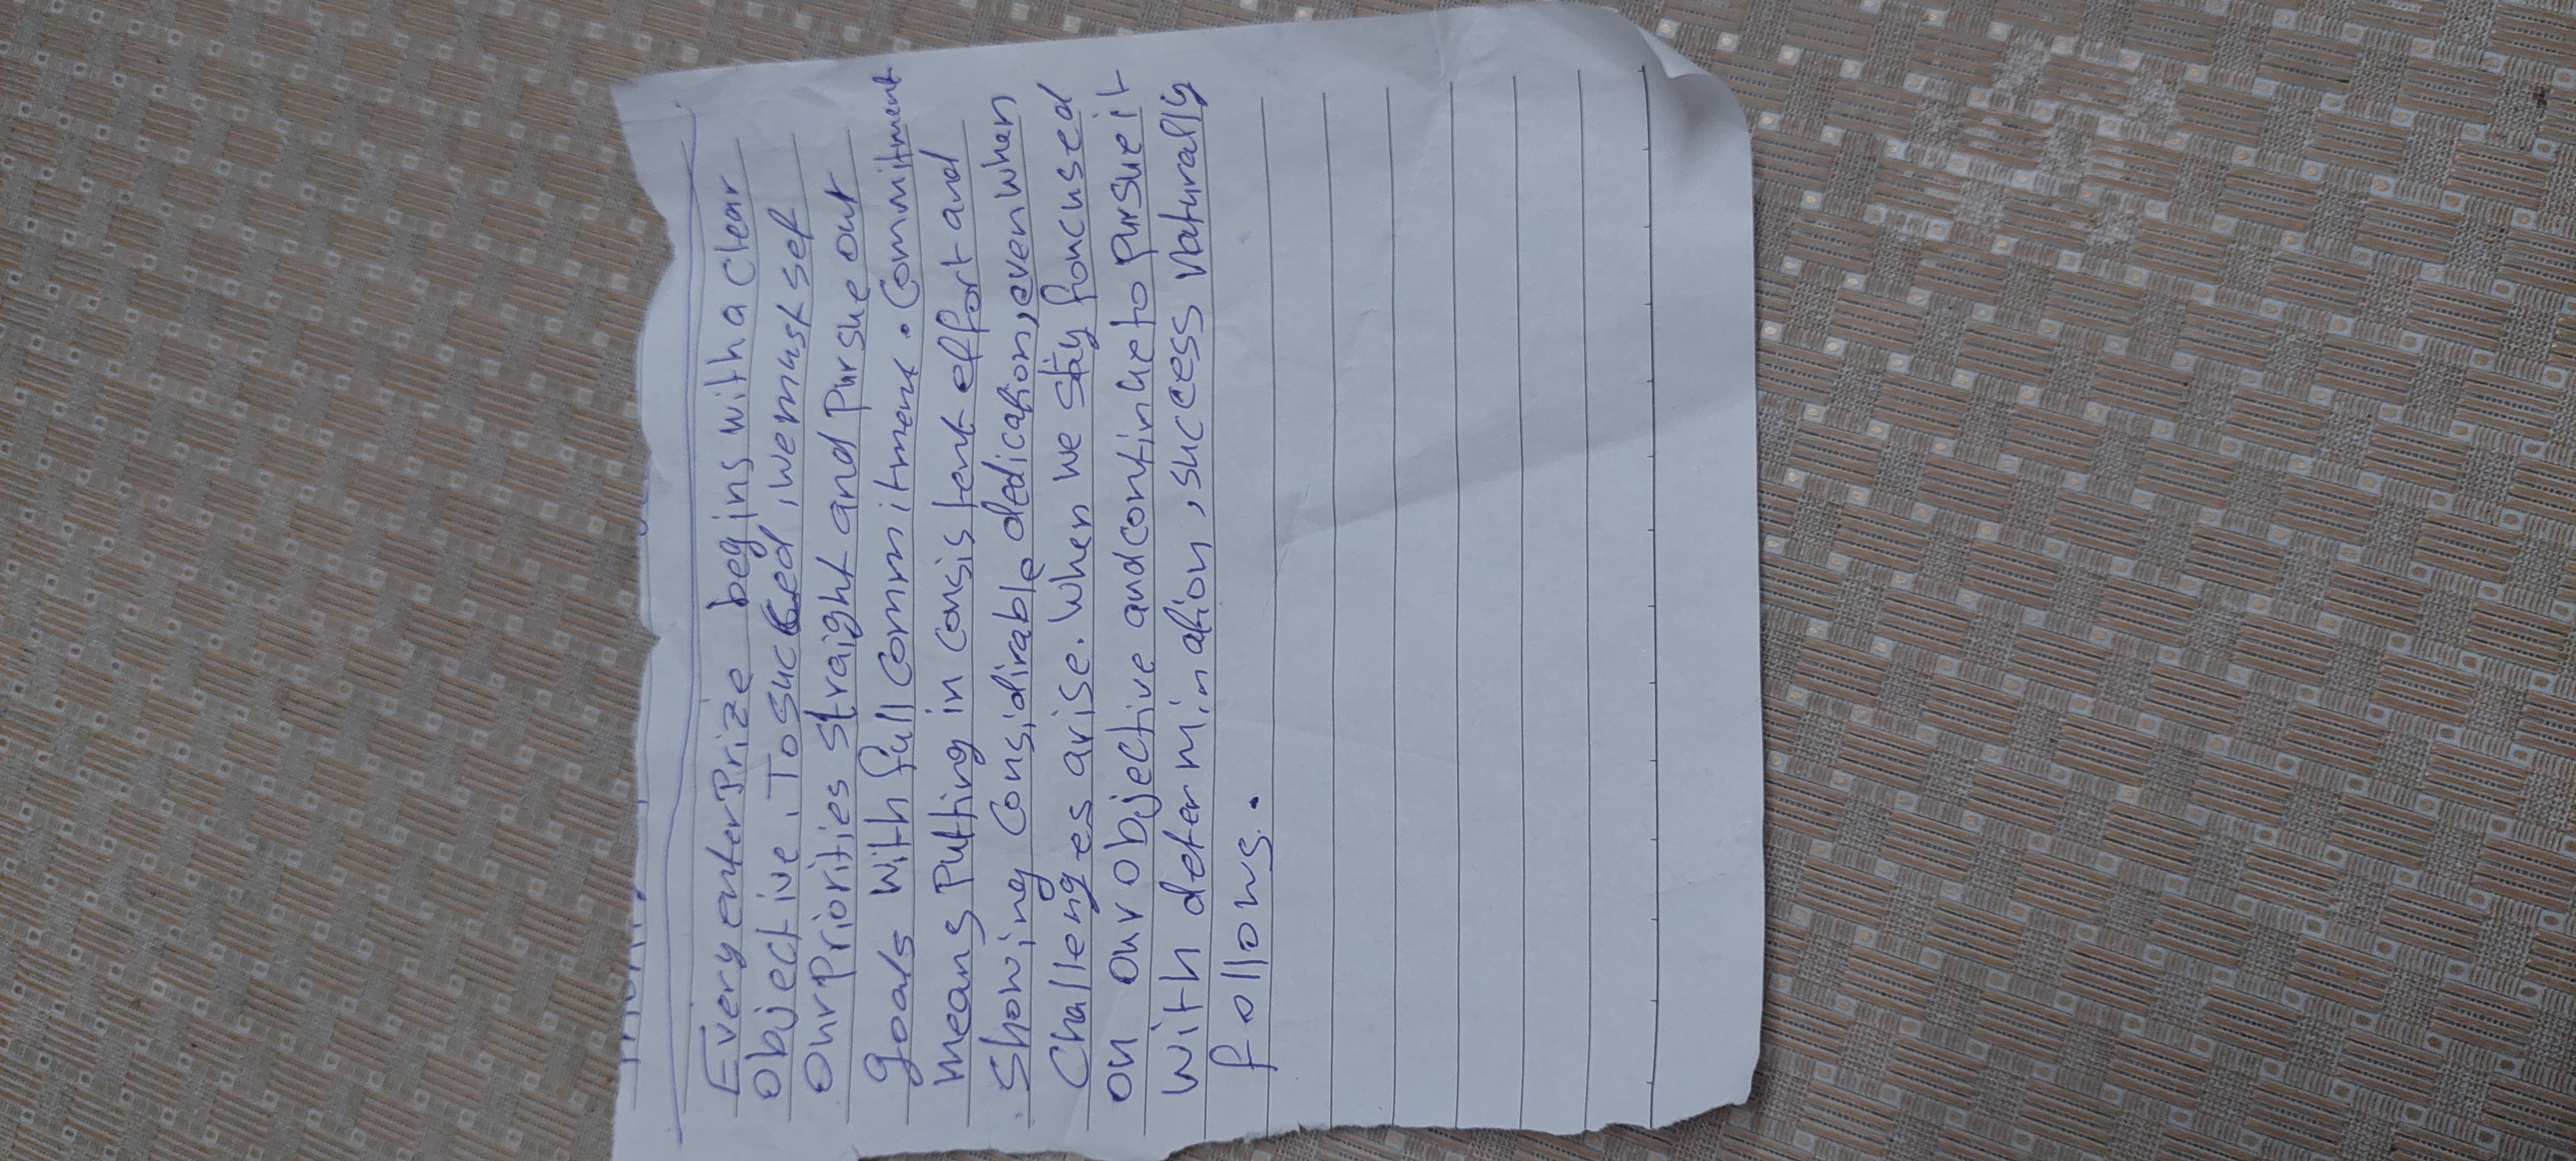 Every enterPrize begins with a clear
objective. To succeed, we must set
our Priorities straight and Pursue our
goals with full commitment. Commitment
means Putting in consistent effort and
showing considirable dedication, even when
challenges arise. When we stay foucused
on our objective and continue to pursue it
with determination, success naturally
follows.